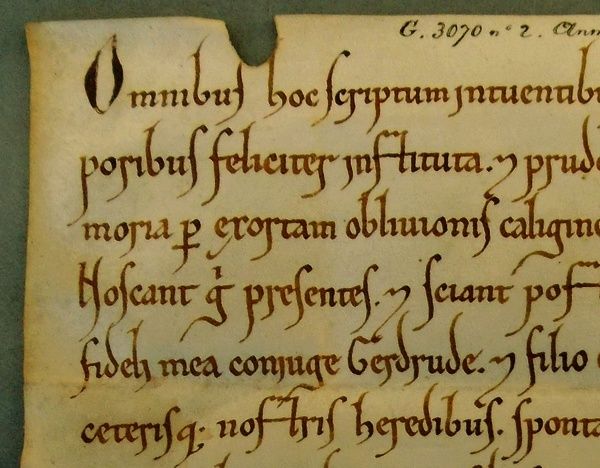 G. 3070 nº 2. Ann
Omnibus hoc scriptum intuentibu
poribus feliciter instituta. ⁊ prud
moria ꝑ exortam obliuionis caligine
Noscant gͥ presentes. ⁊ sciant post
fideli mea coniuge Gerdrude. ⁊ filio
ceterisq; nostris heredibus. sponta